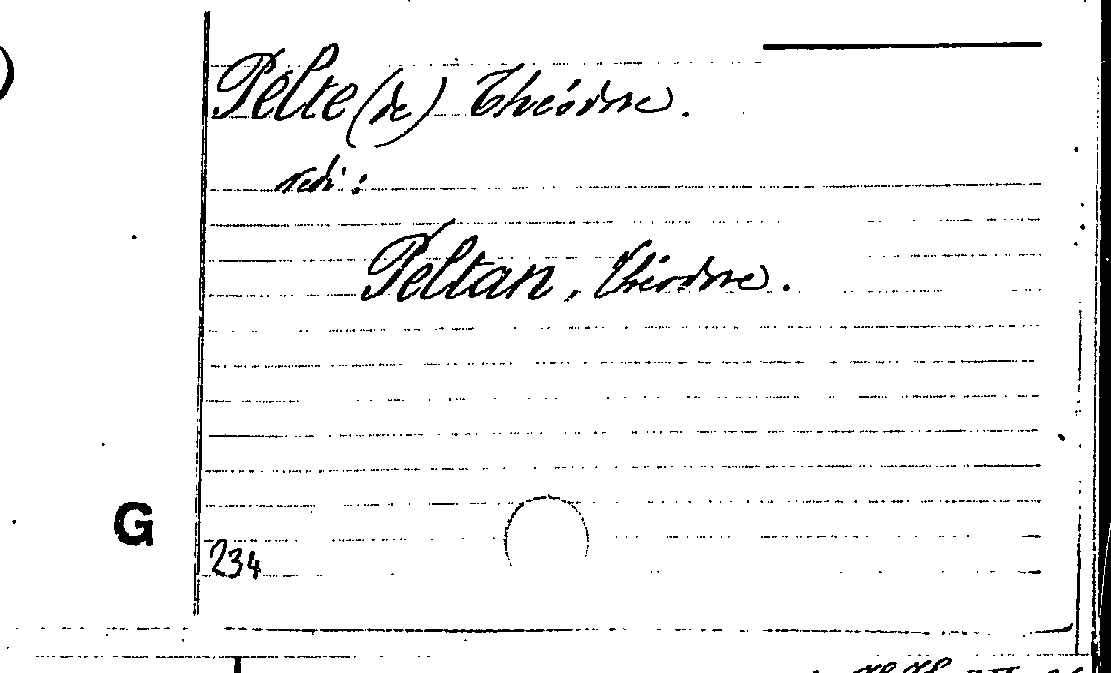 Pelte (de) Théodore.
Vedi:
Peltan, Théodore.
G
234